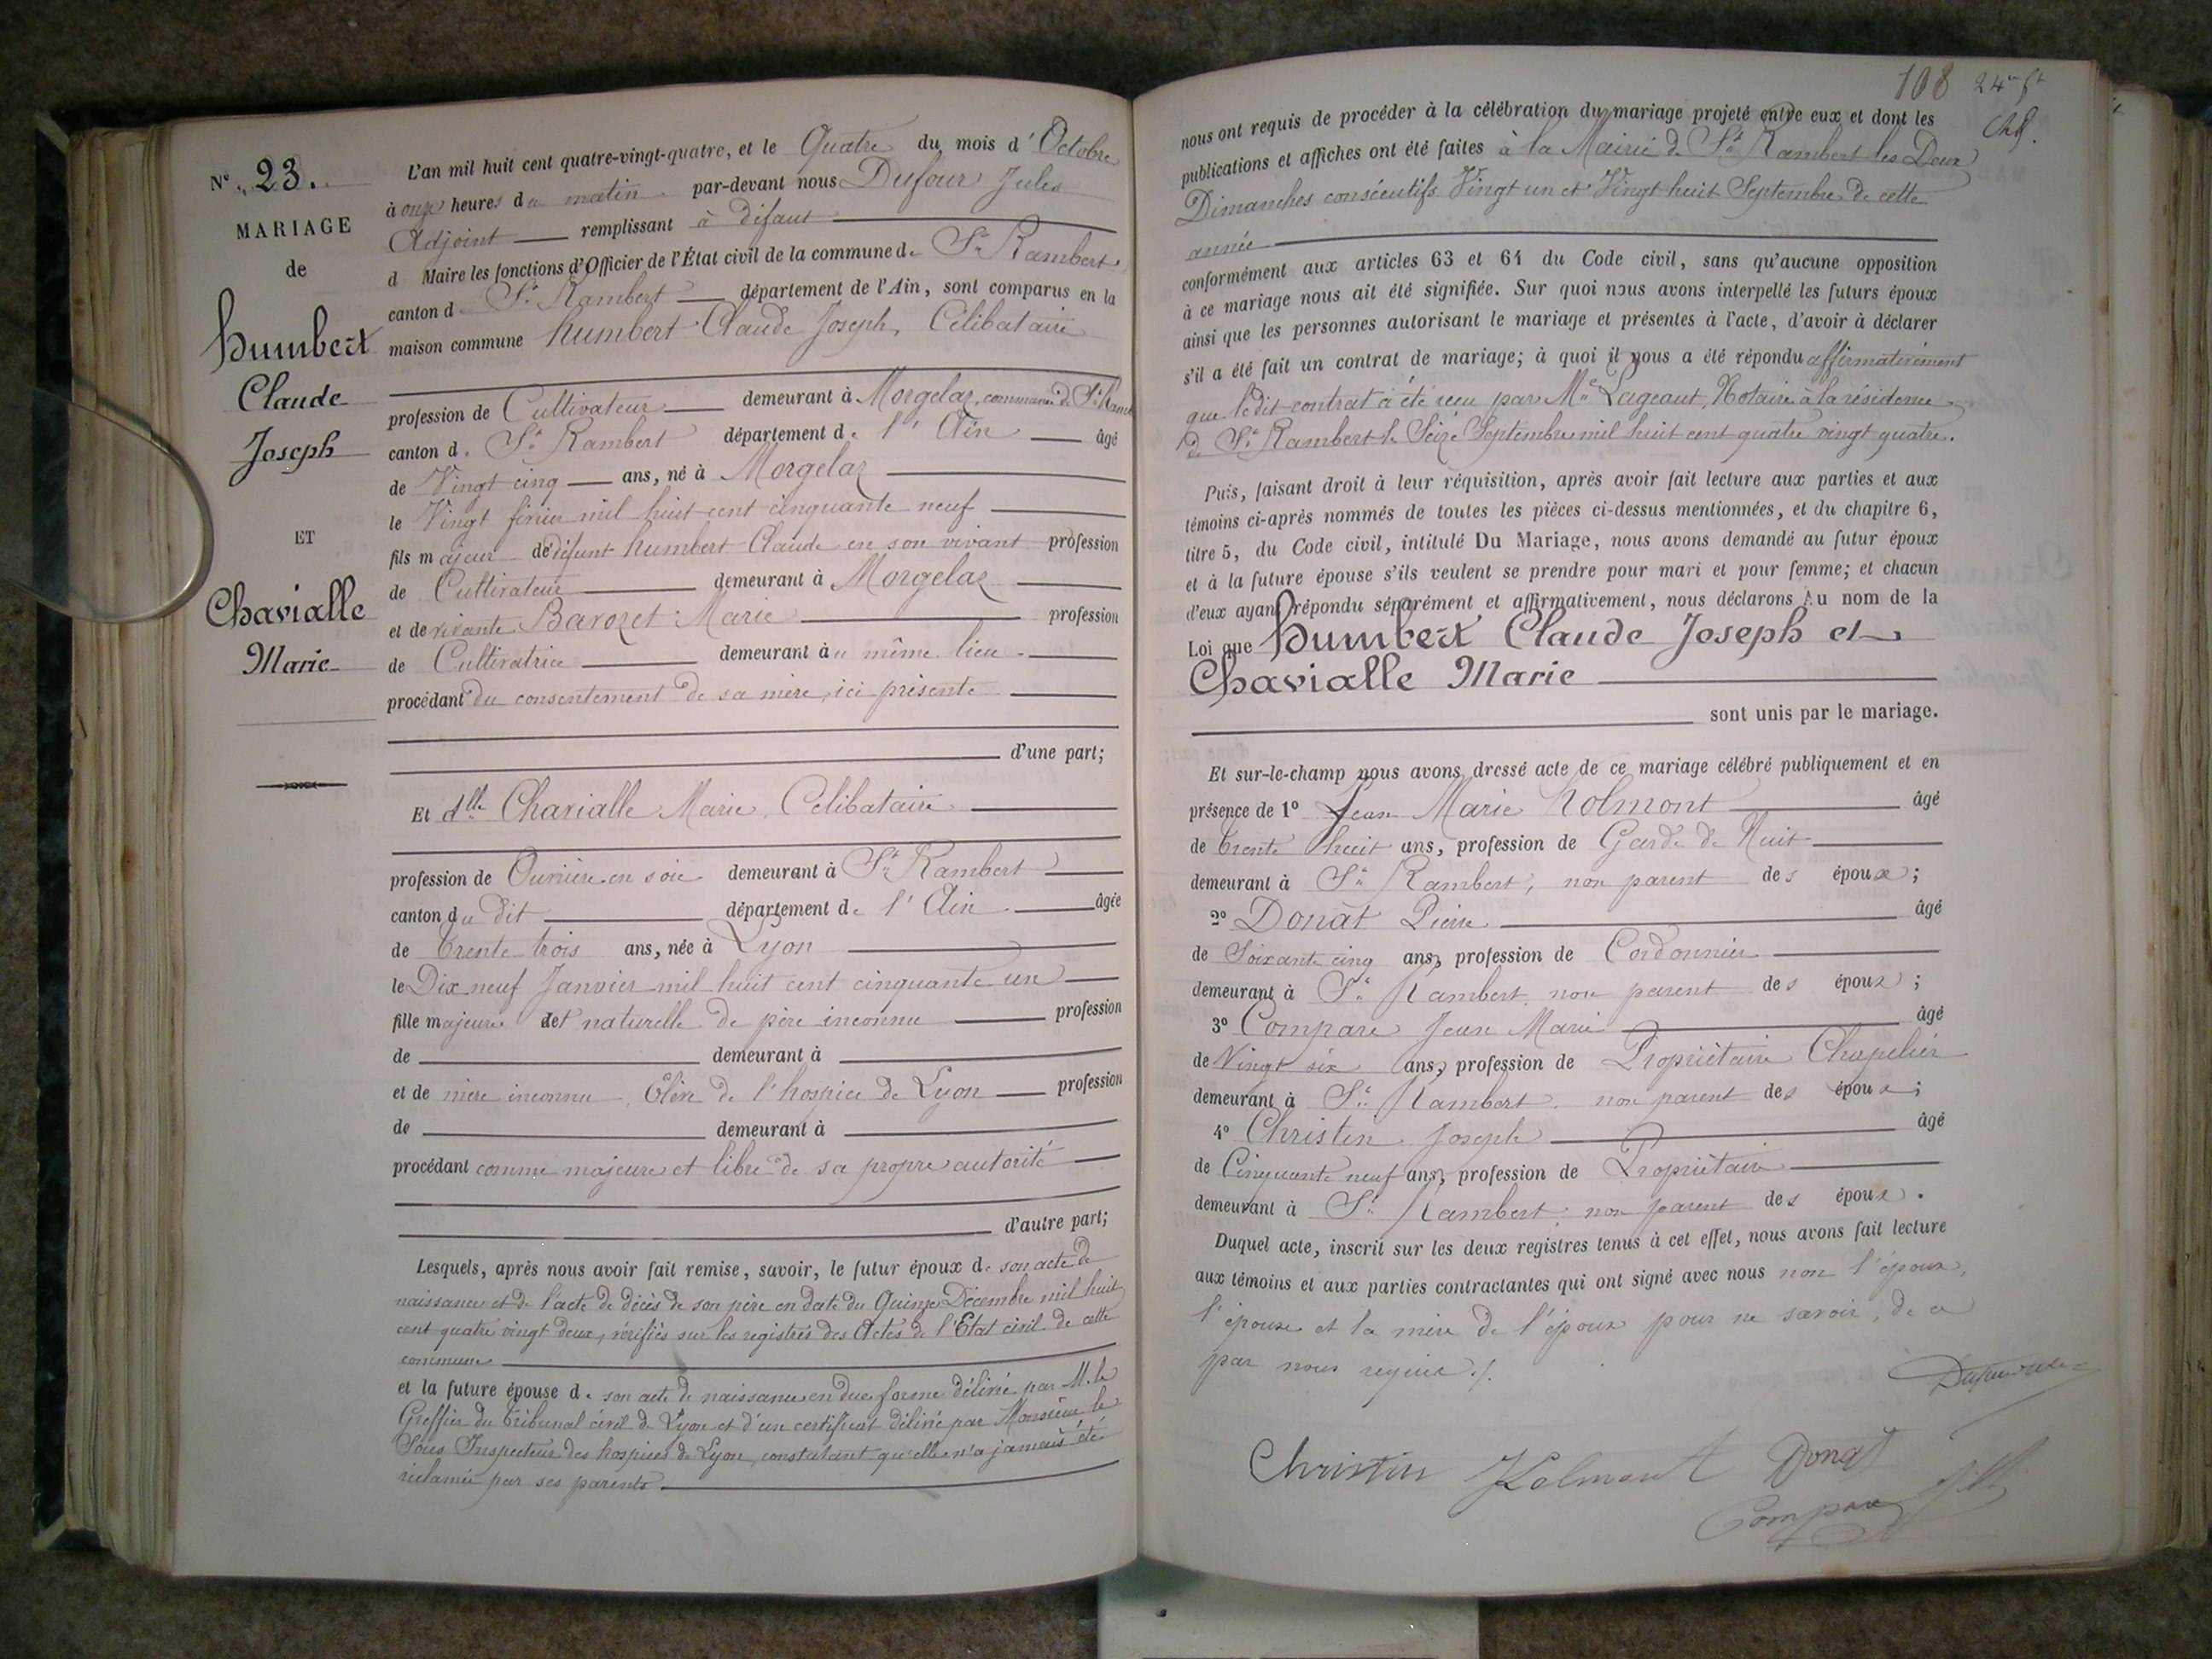 N° 23.
MARIAGE
de
humbert
Claude
Joseph
ET
Chavialle
Marie
L'an mil huit cent quatre-vingt-quatre, et le Quatre du mois d'Octobre
à onze heures du matin par-devant nous Dufour Jules
Adjoint remplissant à défaut
d Maire les fonctions d'Officier de l'État civil de la commune de St Rambert
canton de St Rambert département de l'Ain, sont comparus en la
maison commune humbert Claude Joseph, Célibataire
profession de Cultivateur demeurant à Morgelaz, commune de St Ramb
canton de St Rambert département de l'Ain âgé
de Vingt cinq ans, né à Morgelaz
le Vingt février mil huit cent cinquante neuf
fils majeur de défunt humbert Claude en son vivant profession
de Cultivateur demeurant à Morgelaz
et de vivante Barozet Marie profession
de Cultivatrice demeurant au même lieu
procédant du consentement de sa mère, ici présente
d'une part;
Et dlle Chavialle Marie, Célibataire
profession de Ouvrière en soie demeurant à St Rambert
canton du dit département de l'Ain âgée
de trente trois ans, née à Lyon
le Dix neuf Janvier mil huit cent cinquante un
fille majeure et naturelle de père inconnu profession
de demeurant à
et de mère inconnue, Elève de l'hospice de Lyon profession
de demeurant à
procédant comme majeure et libre de sa propre autorité
d'autre part;
Lesquels, après nous avoir fait remise, savoir, le futur époux de son acte de
naissance et de l'acte de décès de son père en date du Quinze Décembre mil huit
cent quatre vingt deux, vérifiés sur les registres des Actes de l'Etat civil de cette
commune
et la future épouse de son acte de naissance en due forme délivré par M. le
Greffier du tribunal civil de Lyon et d'un certificat délivré par Monsieur le
Sous Inspecteur des hospices de Lyon, constatant qu'elle n'a jamais été
réclamée par ses parents
108 24
nous ont requis de procéder à la célébration du mariage projeté entre eux et dont les
publications et affiches ont été faites à la Mairie de St Rambert les Deux
Dimanches consécutifs Vingt un et Vingt huit Septembre de cette
année
conformément aux articles 63 et 64 du Code civil, sans qu'aucune opposition
à ce mariage nous ait été signifiée. Sur quoi nous avons interpellé les futurs époux
ainsi que les personnes autorisant le mariage et présentes à l'acte, d'avoir à déclarer
s'il a été fait un contrat de mariage; à quoi il nous a été répondu affirmativement
que le dit contrat a été reçu par Me Lageant, Notaire à la résidence
de St Rambert le Seize Septembre mil huit cent quatre vingt quatre.
Puis, faisant droit à leur réquisition, après avoir fait lecture aux parties et aux
témoins ci-après nommés de toutes les pièces ci-dessus mentionnées, et du chapitre 6,
titre 5, du Code civil, intitulé Du Mariage, nous avons demandé au futur époux
et à la future épouse s'ils veulent se prendre pour mari et pour femme; et chacun
d'eux ayant répondu séparément et affirmativement, nous déclarons Au nom de la
Loi que humbert Claude Joseph et
Chavialle Marie
sont unis par le mariage.
Et sur-le-champ nous avons dressé acte de ce mariage célébré publiquement et en
présence de 1° Jean Marie Kolmont âgé
de trente huit ans, profession de Garde de Nuit
demeurant à St Rambert, non parent des époux;
2° Donat Pierre âgé
de Soixante cinq ans, profession de Cordonnier
demeurant à St Rambert, non parent des époux;
3° Compare Jean Marie âgé
de Vingt six ans, profession de Propriétaire Chapelier
demeurant à St Rambert, non parent des époux;
4° Christin Joseph âgé
de Cinquante neuf ans, profession de Propriétaire
demeurant à St Rambert, non parent des époux.
Duquel acte, inscrit sur les deux registres tenus à cet effet, nous avons fait lecture
aux témoins et aux parties contractantes qui ont signé avec nous non l'époux,
l'épouse et la mère de l'époux pour ne savoir, de ce
par nous requis ./.
Christin Kolmont Donat